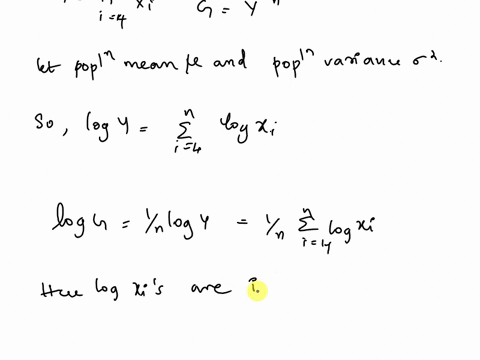 i=4 xi G = Y n
let pop|n mean μ and pop|n variance σ2.
So, log Y = n∑i=4 log xi
log G = 1/n log Y = 1/n n∑i=4 log xi
Here log xi's are i.